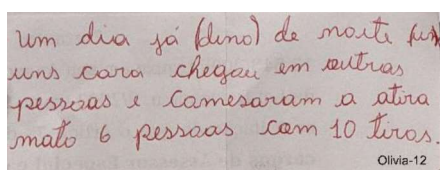 um dia já (dino) de noite
uns cara chegau em outras
pessoas e comesaram a atira
mato 6 pessoas com 10 tiros.
Olivia-12